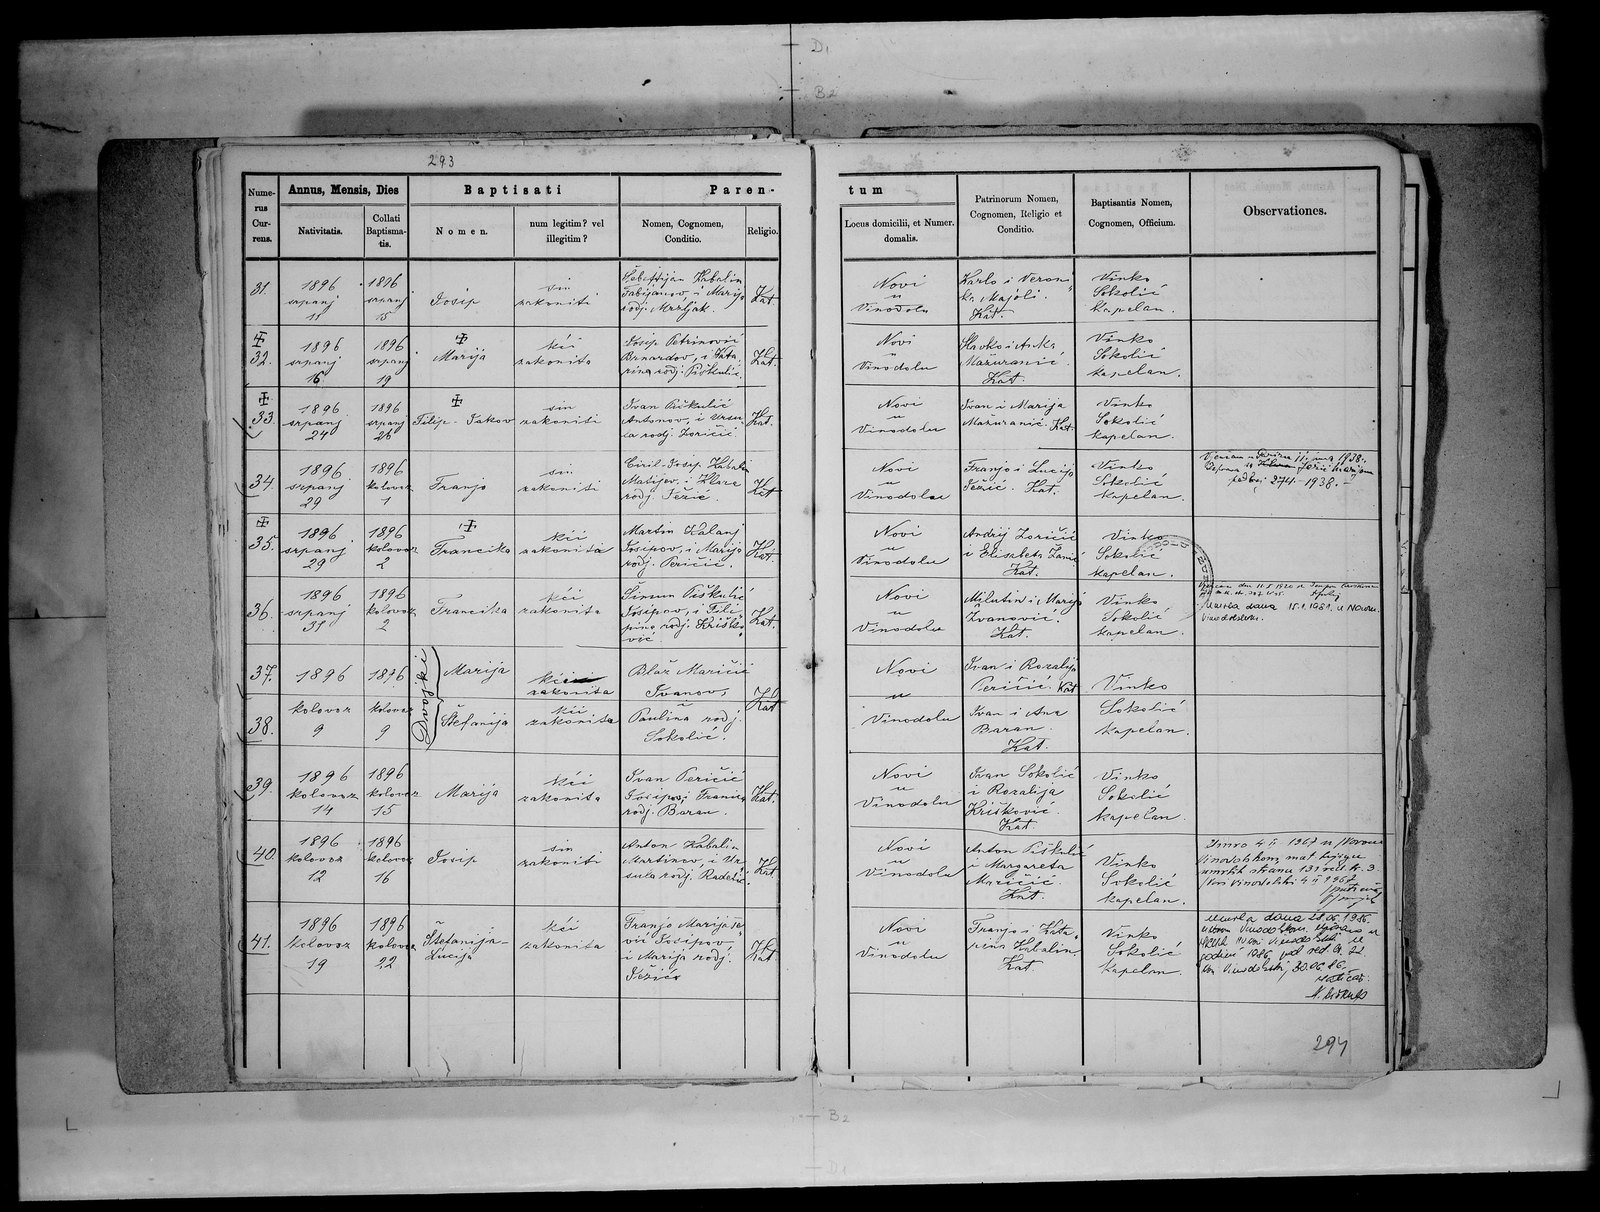 D1
B2
293
Nume-
rus
Cur-
rens.
Annus, Mensis, Dies
Nativitatis.
Collati
Baptisma-
tis.
Baptisati
Nomen.
num legitim? vel
illegitim?
Paren-
Nomen, Cognomen,
Conditio.
Religio.
tum
Locus domicilii, et Numer.
domalis.
Patrinorum Nomen,
Cognomen, Religio et
Conditio.
Baptisantis Nomen,
Cognomen, Officium.
Observationes.
31.
1896
srpanj
11
1896
srpanj
15
Josip
sin
zakoniti
Šebastijan Kabalin
Fabijanov, i Marija
rodj. Mrzljak.
Kat.
Novi
u
Vinodolu
Karlo i Veron-
ka Majoli.
Kat.
Vinko
Sokolić
kapelan.
32.
1896
srpanj
16
1896
srpanj
19
Marija
kći
zakonita
Josip Petrinović
Brnardov, i Kata
rina rodj. Piškulić.
Kat.
Novi
u
Vinodolu
Slavko i Anka
Mažuranić.
Kat.
Vinko
Sokolić
kapelan.
33.
1896
srpanj
24
1896
srpanj
26
Filip-Jakov
sin
zakoniti
Ivan Piškulić
Antonov, i Ursu
la rodj. Zoričić.
Kat.
Novi
u
Vinodolu
Ivan i Marija
Mažuranić. Kat.
Vinko
Sokolić
kapelan.
34.
1896
srpanj
29
1896
kolovoz
1
Franjo
sin
zakoniti
Ciril-Josip Kabalin
Matijev, i Klara
rodj. Ježić.
Kat
Novi
u
Vinodolu
Franjo i Lucija
Ježić. Kat.
Vinko
Sokolić
kapelan.
1938.
274 - 1938.
35.
1896
srpanj
29
1896
kolovoz
2
Francika
kći
zakonita
Martin Kalanj
Josipov, i Marija
rodj. Peričić.
Kat.
Novi
u
Vinodolu
Andrij Zoričić
i Elisabeta Zanić
Kat.
Vinko
Sokolić
kapelan.
36.
1896
srpanj
31
1896
kolovoz
2
Francika
kći
zakonita
Šimun Piškulić
Josipov, i Fili
pina rodj. Kriško
vić.
Kat.
Novi
u
Vinodolu
Milutin i Marija
Ivanović.
Kat.
Vinko
Sokolić
kapelan.
Umrla dana 15.1.1981. u Novom
Vinodolskom.
37.
38.
1896
kolovoz
9
1896
kolovoz
9
Dvojki
Marija
Štefanija
kći
zakonita
kći
zakonita
Blaž Maričić
Ivanov,
Paulina rodj.
Sokolić.
Kat
Novi
u
Vinodolu
Ivan i Rozalija
Peričić. Kat
Ivan i Ana
Baran.
Kat.
Vinko
Sokolić
kapelan.
39.
1896
kolovoz
14
1896
kolovoz
15
Marija
kći
zakonita
Ivan Peričić
Josipov, i Franica
rodj. Baran.
Kat.
Novi
u
Vinodolu
Ivan Sokolić
i Rozalija
Krišković.
Kat.
Vinko
Sokolić
kapelan.
40.
1896
kolovoz
12
1896
kolovoz
16
Josip
sin
zakoniti
Anton Kabalin
Martinov, i Ur
sula rodj. Radetić.
Kat.
Novi
u
Vinodolu
Anton Piškulić
i Margareta
Maričić.
Kat.
Vinko
Sokolić
kapelan.
Umro 4 II 1967 u Novom
Vinodolskom, mat. knjiga
umrlih strana 131 red. br. 3
Novi Vinodolski 4 II 1967
41.
1896
kolovoz
19
1896
kolovoz
22
Štefanija-
Lucija
kći
zakonita
Franjo Marija še
vić Josipov,
i Marija rodj.
Ježić
Kat
Novi
u
Vinodolu
Franjo i Kata
rina Kabalin
Kat.
Vinko
Sokolić
kapelan.
Umrla dana 28.06.1986.
u Novom Vinodolskom. Upisano u
MKU Novi Vinodolski u
godini 1986, pod red. br. 21.
Novi Vinodolski, 30.06.86.
Matičar:
294
B2
D1